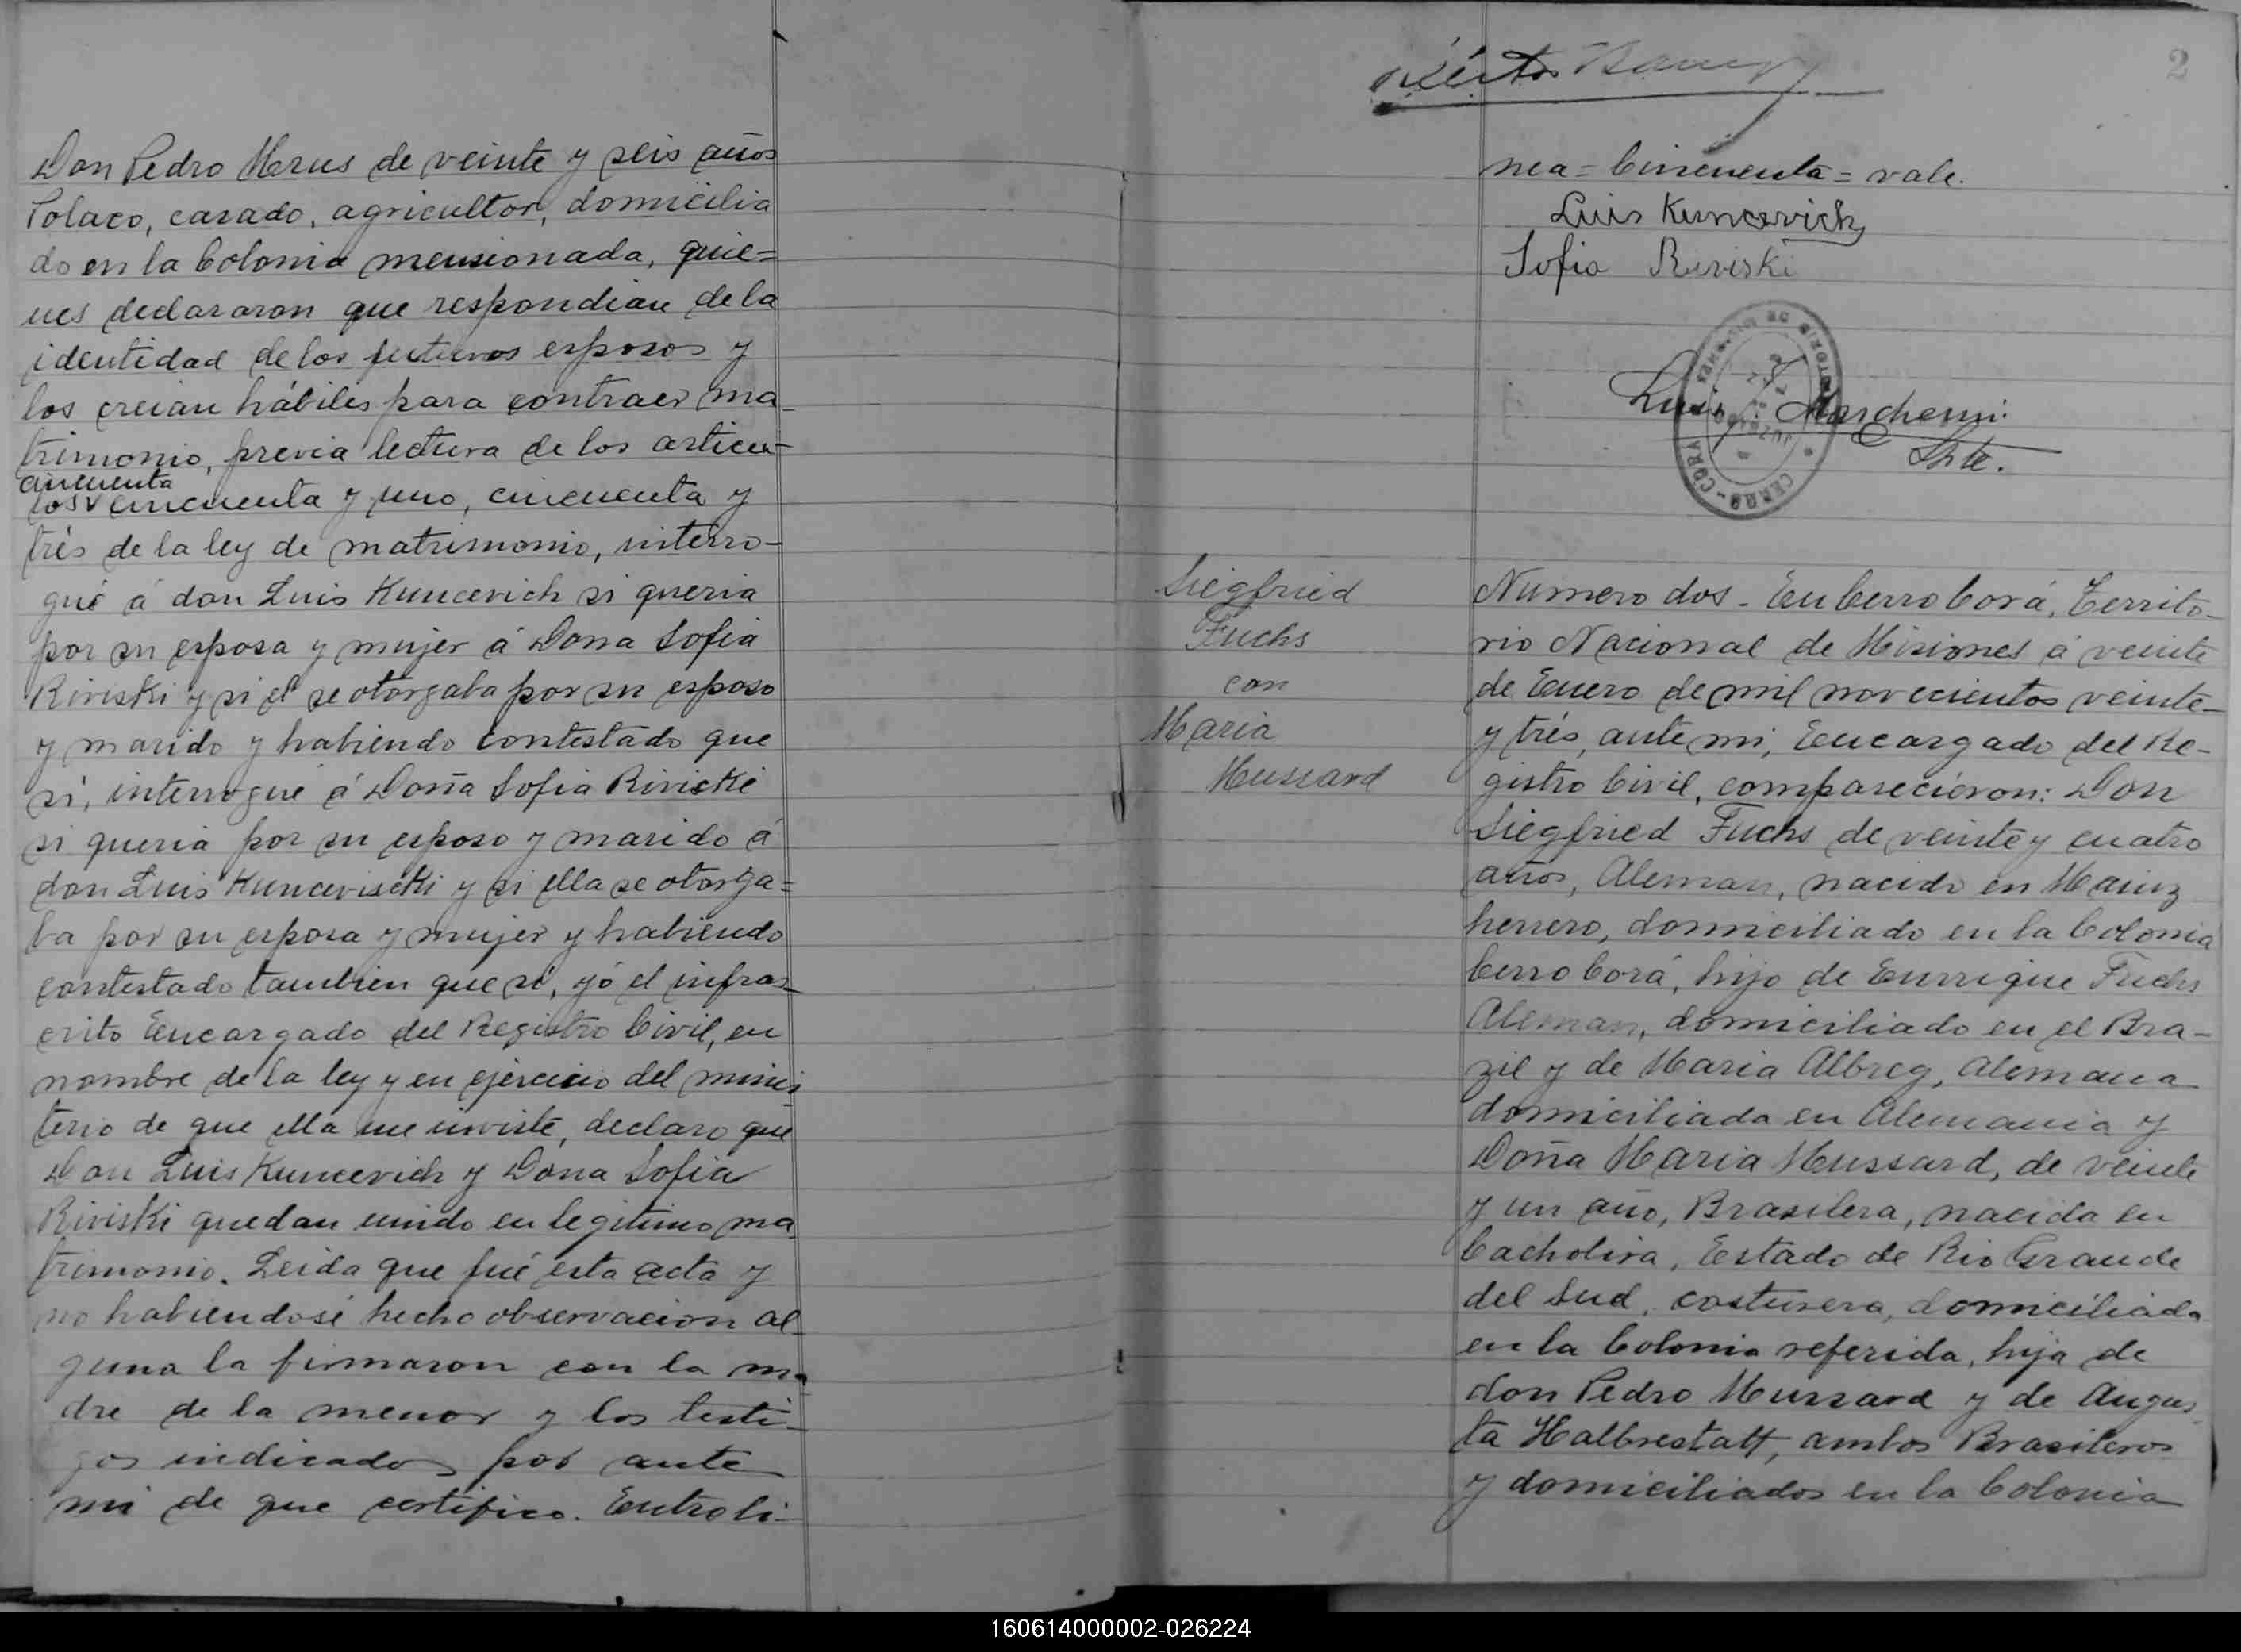 Don Pedro Merus de veinte y seis años
Polaco, casado, agricultor, domicilia
do en la Colonia mensionada, quie=
nes declararon que respondian de la
identidad de los futuros esposos y
los creian hábiles para contraer ma-
trimonio, previa lectura de los articu-
cincuenta
los v cincuenta y uno, cincuenta y
trés de la ley de matrimonio, interro-
gué á don Luis Kuncevich si queria
por su esposa y mujer á Dona Sofia
Riviski y si el se otorgaba por su esposo
y marido y habiendo contestado que
si, interrogué á Doña Sofia Rivicki
si queria por su esposo y marido á
don Luis Kuncevischi y si ella se otorga=
ba por su esposa y mujer y habiendo
contestado tambien que si, yó el infras-
crito Encargado del Registro Civil, en
nombre de la ley y en ejercicio del minis
terio de que ella me inviste, declaro que
Don Luis Kuncevich y Dona Sofia
Riviski quedan unido en legitimo ma
trimonio. Leida que fué esta acta y
no habiendosé hecho observacion al-
guna la firmaron con la ma
dre de la menor y los testi-
gos indicados por ante
mi de que certifico. Entre li-
2
nea = Cincuenta = vale.
Luis Kuncevich
Sofia Riviski
Luis Marchesini
Ste.
CERRO-CORA
Siegfried
Fuchs
con
Maria
Mussard
Numero dos - En Cerro Corá, Territo-
rio Nacional de Misiones á veinte
de Enero de mil novecientos veinte-
y trés, ante mi, Encargado del Re-
gistro Civil, comparecieron: Don
Siegfried Fuchs de veinte y cuatro
años, Aleman, nacido en Mainz
herrero, domiciliado en la Colonia
Cerro Corá, hijo de Enrrique Fuchs
Aleman, domiciliado en el Bra-
zil y de Maria Albreg, Alemana
domiciliada en Alemania y
Doña Maria Mussard, de veinte
y un año, Brasilera, nacida en
Cacholira, Estado de Rio Grande
del Sud, costurera, domiciliada
en la Colonia referida, hija de
don Pedro Mussard y de Augus
ta Halbrestatt, ambos Brasileros
y domiciliados en la Colonia
160614000002-026224